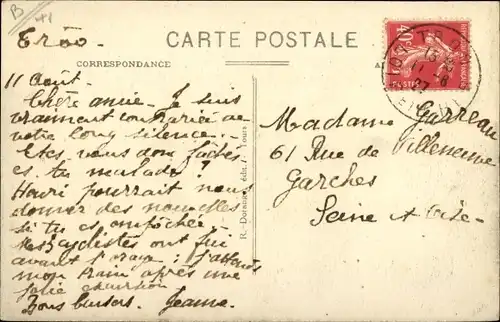 B 41
Tröo.
CARTE POSTALE
CORRESPONDANCE
A
40c
POSTES
TROO
17-8
11 Août.
Chère amie. Je suis
vraiment contrariée de
votre long silence..
Etes vous donc fâchés
es. tu malade?
Henri pourrait nous
donner des nouvelles
si tu es empêchée.
Mes cyclistes ont fui
avant l'orage; j'attends
mon train après une
jolie excursion
Bons baisers. Jeanne.
R. Dorange, édit., Tours
Madame Garreau
61 Rue de Villeneuve
Garches
Seine et Oise-